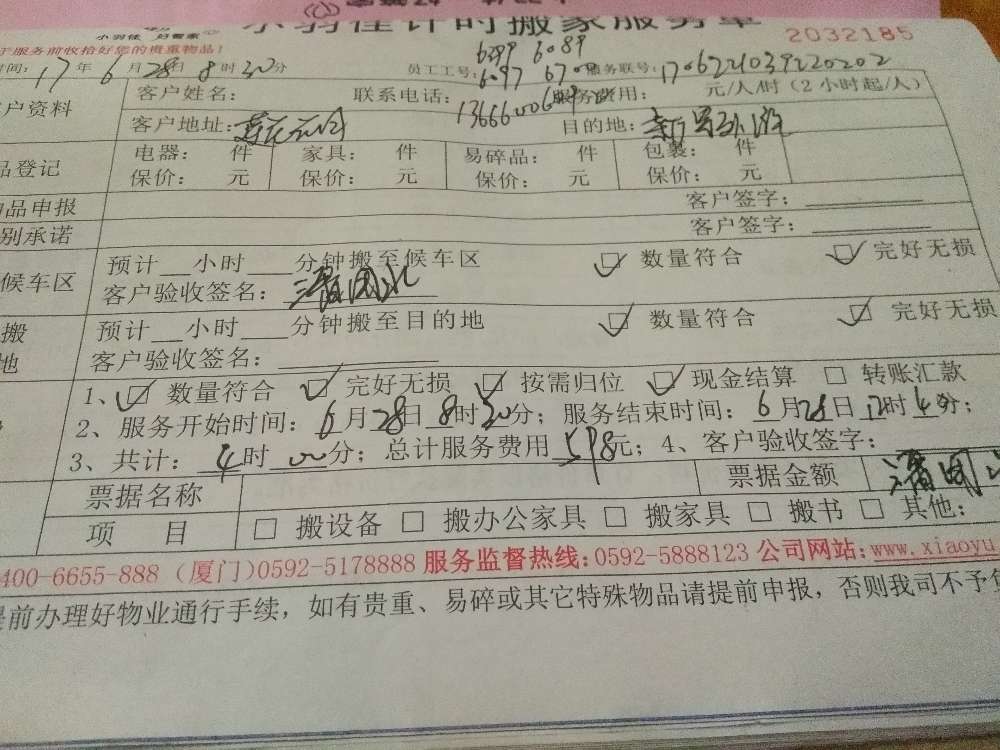 小羽佳计时搬家服务单
小羽佳 好管家
2032185
于服务前收拾好您的贵重物品!
时间: 17年6月28日8时30分 员工工号: 6299 6089 6097 服务联号: 1706221039220202
户资料 客户姓名: 联系电话: 服务费用: 元/人/时(2小时起/人)
客户地址: 莲花 目的地:
品登记 电器: 件 家具: 件 易碎品: 件 包裹: 件
保价: 元 保价: 元 保价: 元 保价: 元
物品申报 客户签字:
别承诺 客户签字:
候车区 预计 小时 分钟搬至候车区 ☑ 数量符合 ☑ 完好无损
客户验收签名:
搬 预计 小时 分钟搬至目的地 ☑ 数量符合 ☑ 完好无损
地 客户验收签名:
1、☑ 数量符合 ☑ 完好无损 ☑ 按需归位 ☑ 现金结算 □ 转账汇款
2、服务开始时间: 6月28日8时30分; 服务结束时间: 6月28日12时 分;
3、共计: 4时00分; 总计服务费用598元; 4、客户验收签字:
票据名称 票据金额
项 目 □ 搬设备 □ 搬办公家具 □ 搬家具 □ 搬书 □ 其他:
400-6655-888 (厦门)0592-5178888 服务监督热线:0592-5888123 公司网站:www.xiaoyu
提前办理好物业通行手续，如有贵重、易碎或其它特殊物品请提前申报，否则我司不予